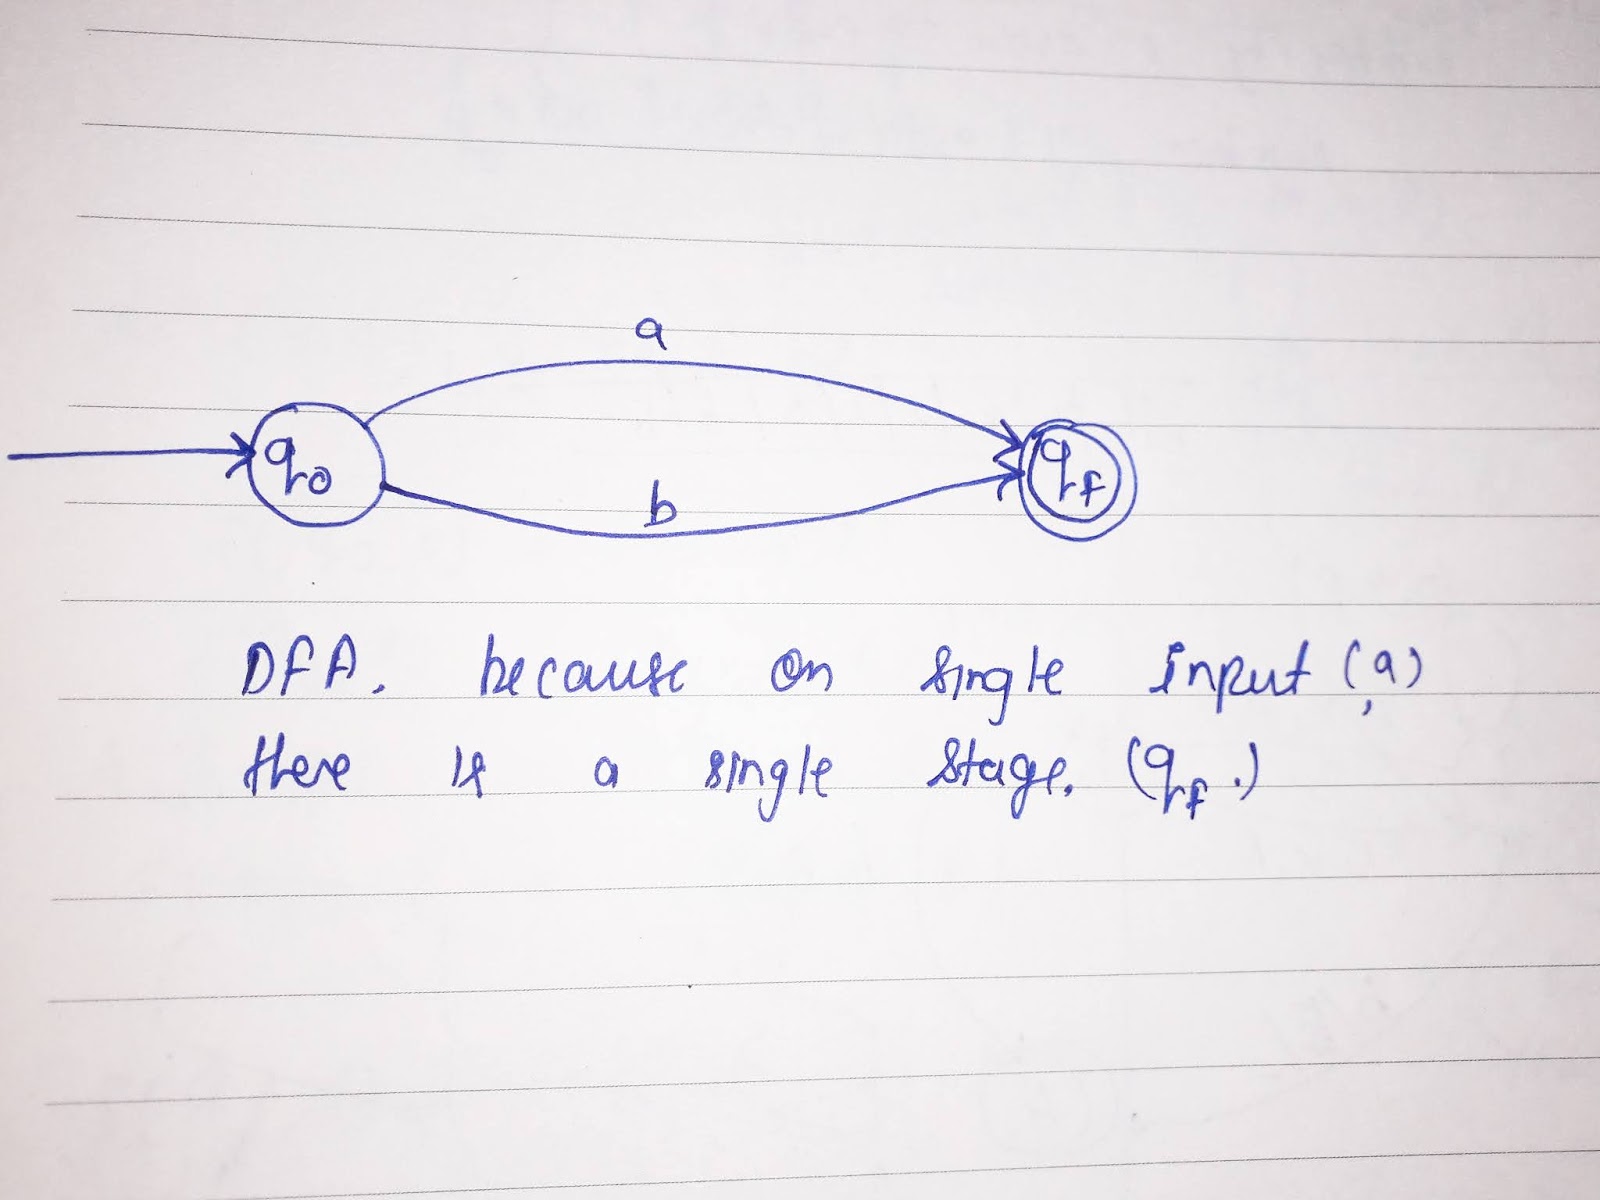 a
q0
b
qf
DFA. because on single input (a),
there is a single stage. (qf.)